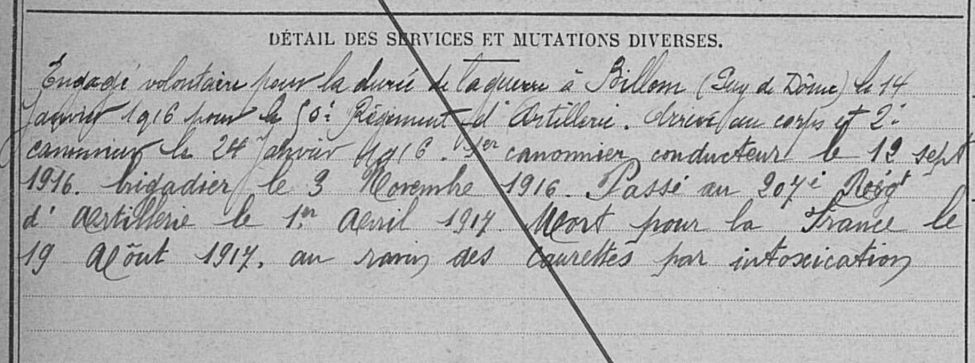 DÉTAIL DES SERVICES ET MUTATIONS DIVERSES.
Engagé volontaire pour la durée de la guerre à Billom (Puy de Dôme) le 14
Janvier 1916 pour le 50è Régiment d'Artillerie. Arrivé au corps et 2è
canonnier le 24 Janvier 1916. 1er canonnier conducteur le 12 sept
1916. brigadier le 3 Novembre 1916. Passé au 207è Régt
d'Artillerie le 1er Avril 1917. Mort pour la France le
19 Août 1917, au ravin des Caurettes par intoxication